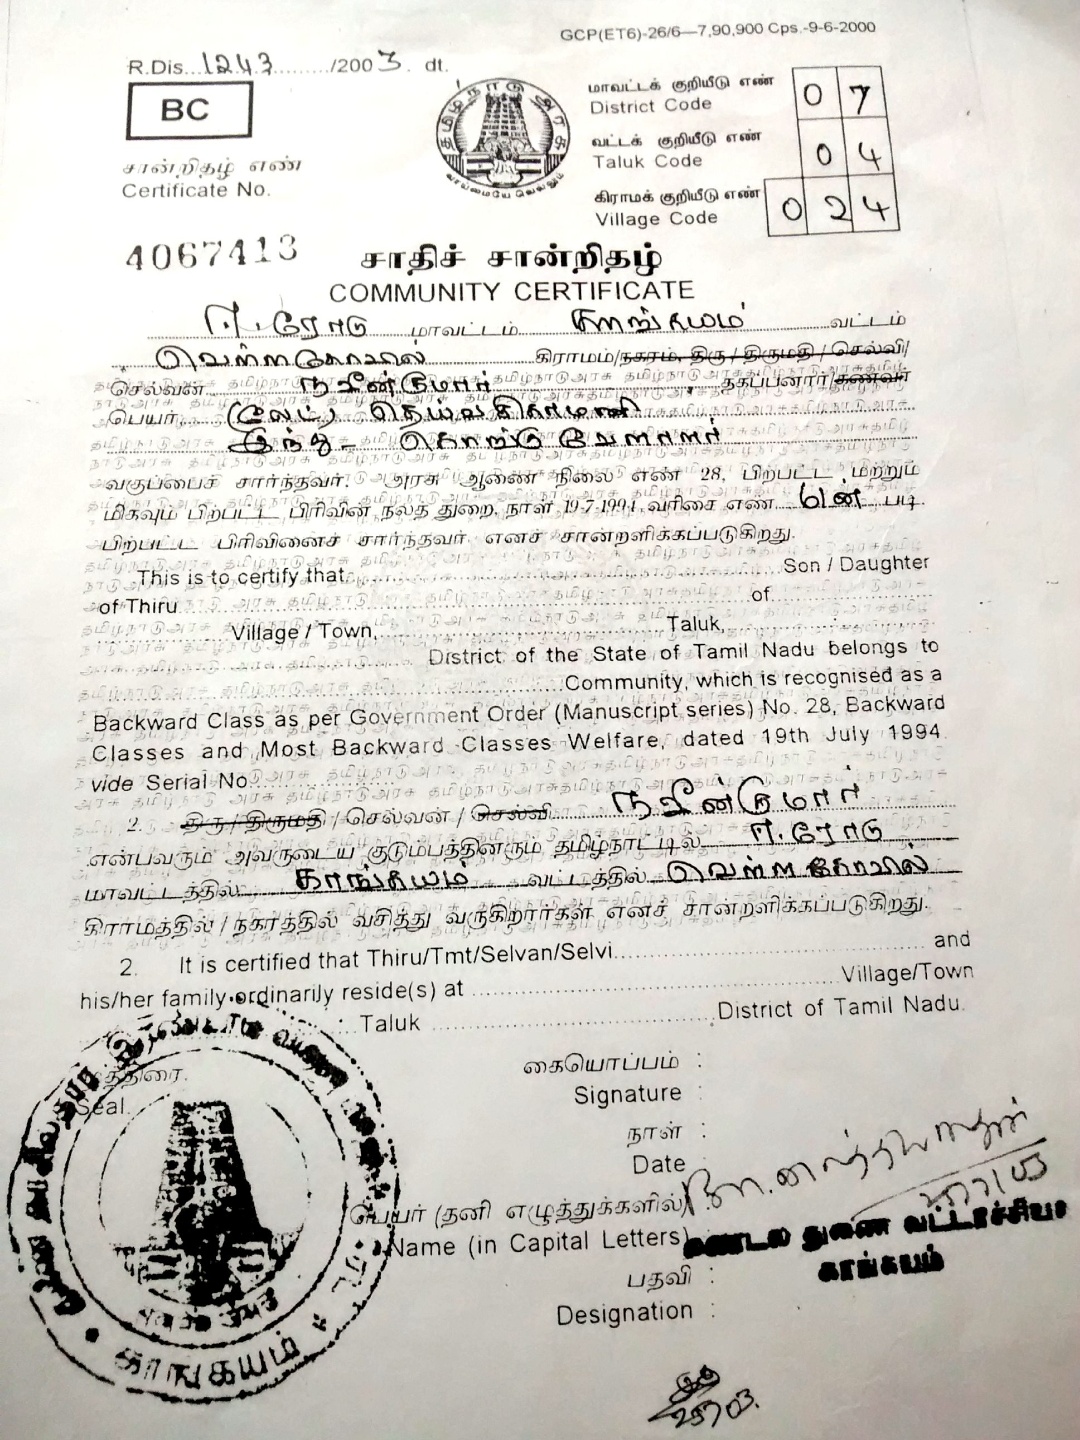 GCP(ET6)-26/6—7,90,900 Cps.-9-6-2000
R.Dis...1243........./2003. dt.
BC
தமிழ்நாடு அரசு
வாய்மையே வெல்லும்
மாவட்டக் குறியீடு எண் 0 7
District Code
வட்டக் குறியீடு எண் 0 4
Taluk Code
கிராமக் குறியீடு எண் 0 2 4
Village Code
சான்றிதழ் எண்
Certificate No.
4067413
சாதிச் சான்றிதழ்
COMMUNITY CERTIFICATE
ஈ.ரோடு மாவட்டம் காங்கயம் வட்டம்
வெள்ளகோவில் கிராமம்/நகரம், திரு / திருமதி / செல்வி/
செல்வன் நவீன்குமார் தகப்பனார்/கணவர்
பெயர் (லேட்) தெய்வசிகாமணி
இந்து - கொங்கு வேளாளர்
வகுப்பைச் சார்ந்தவர். அரசு ஆணை நிலை எண் 28, பிற்பட்ட மற்றும்
மிகவும் பிற்பட்ட பிரிவின் நலத் துறை, நாள் 19-7-1994 வரிசை எண் படி
பிற்பட்ட பிரிவினைச் சார்ந்தவர் எனச் சான்றளிக்கப்படுகிறது.
This is to certify that Son / Daughter
of Thiru of
Village / Town, Taluk,
District of the State of Tamil Nadu belongs to
Community, which is recognised as a
Backward Class as per Government Order (Manuscript series) No. 28, Backward
Classes and Most Backward Classes Welfare, dated 19th July 1994
vide Serial No
2. திரு / திருமதி / செல்வன் / செல்வி நவீன்குமார்
என்பவரும் அவருடைய குடும்பத்தினரும் தமிழ்நாட்டில் ஈ.ரோடு
மாவட்டத்தில் காங்கயம் வட்டத்தில் வெள்ளகோவில்
கிராமத்தில் / நகரத்தில் வசித்து வருகிறார்கள் எனச் சான்றளிக்கப்படுகிறது.
2. It is certified that Thiru/Tmt/Selvan/Selvi and
his/her family ordinarily reside(s) at Village/Town
Taluk District of Tamil Nadu.
முத்திரை.
Seal.
கையொப்பம் :
Signature :
நாள் :
Date
பெயர் (தனி எழுத்துக்களில்)
Name (in Capital Letters)
மண்டல துணை வட்டாட்சியர்
காங்கயம்
பதவி :
Designation :
காங்கயம்